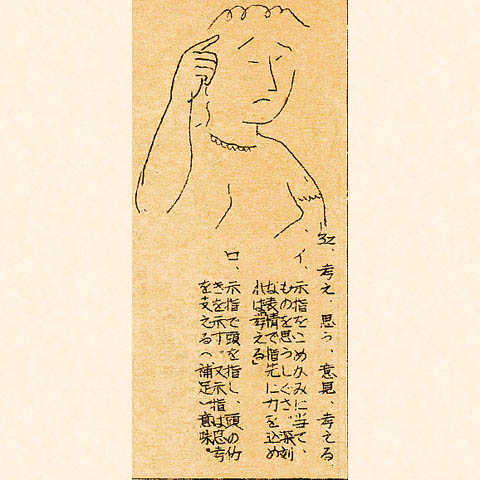 32、考え、思う、意見、考える。
イ、示指をこめかみに当て、
ものを思うしぐさ。深刻
な表情で指先に力を込め
れば「考える」
ロ、示指で頭を指し、頭の仂
きを示す。又示指は思考
を支える(補足)意味。